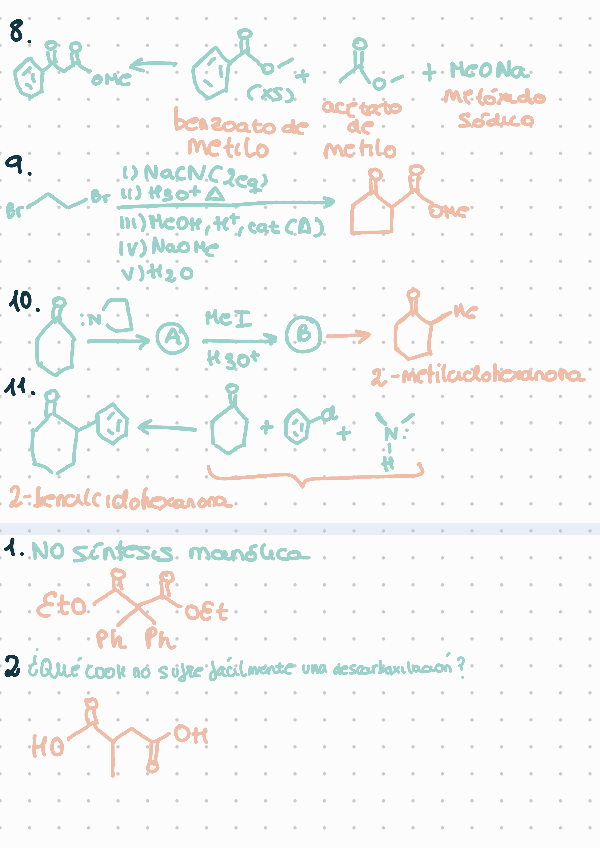 8.
OMe
O
O
O
O
O
O
(XS)
+
+ MeONa
benzoato de metilo
acetato de metilo
metóxido sódico
9.
Br
Br
i) NaCN (2eq)
ii) H3O+ Δ
iii) MeOH, H+, cat (Δ)
iv) NaOMe
v) H2O
O
O
OMe
10.
O
:N
A
MeI
H3O+
B
O
Me
2-metilciclohexanona
11.
O
O
+
Cl
+
N:
H
2-fenilciclohexanona
1. NO síntesis malónica
EtO
O
O
OEt
Ph
Ph
2 ¿Qué COOH no sufre fácilmente una descarboxilación?
HO
O
O
OH